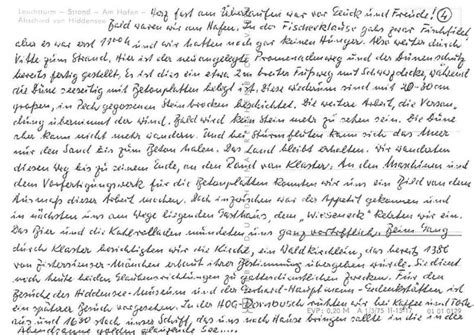 Leuchtturm – Strand – Am Hafen –
Abschied von Hiddensee
Herz fast am Überlaufen war vor Glück und Freude! (4)
Bald waren wir am Hafen. In der Fischerklause gab's zwar Fischfilet,
aber es war erst 1100h und wir hatten noch gar keinen Hunger. Also weiter durch
Vitte zum Strand. Hier ist der neuangelegte Promenadenweg und der Dünenschutz
bereits fertig gestellt. Es ist dies ein etwa 2m breiter Fußweg mit Schwarzdecke, während
die Düne seeseitig mit Betonplatten belegt ist. Diese wiederum sind mit 20-30cm
großen, in Pech gegossenen Steinbrocken beschichtet. Die weitere Arbeit, die Versan-
dung übernimmt der Wind. Bald wird kein Stein mehr zu sehen sein. Die Düne
aber kann nicht mehr wandern. Und bei Sturmfluten kann sich das Meer
nur den Sand bis zum Beton holen. Das Land bleibt erhalten. Wir wanderten
diesen Weg bis zu seinem Ende, an den Rand von Kloster. An den Maschinen und
dem Vorfertigungswerk für die Betonplatten konnten wir uns ein Bild von dem
Ausmaß dieser Arbeit machen. Doch inzwischen war der Appetit gekommen und
im nächsten uns am Wege liegenden Gasthaus, dem „Wieseneck" kehrten wir ein.
Das Bier und die Kohlrouladen mundeten uns ganz vortrefflich. Beim Gang
durch Kloster besichtigten wir die Kirche, ein Waldkirchlein, das bereits 1386
von Zisterzienser-Mönchen erbaut ihrer Bestimmung übergeben wurde. Sie dient
noch heute beiden Glaubensrichtungen zu gottesdienstlichen Zwecken. Für den
Besuche des Hiddensee-Museum und der Gerhard-Hauptmann-Gedenkstätten ist
ein späterer Besuch vorgesehen. In der HOG-Dornbusch ruhten wir bei Kaffee und Torte
aus und 1630 stach unser Schiff, das uns nach Hause bringen sollte, in der
Abendsonne glänzende See....
EVP: 0,20 M A 1/3/75 II-13-17 01 01 0129